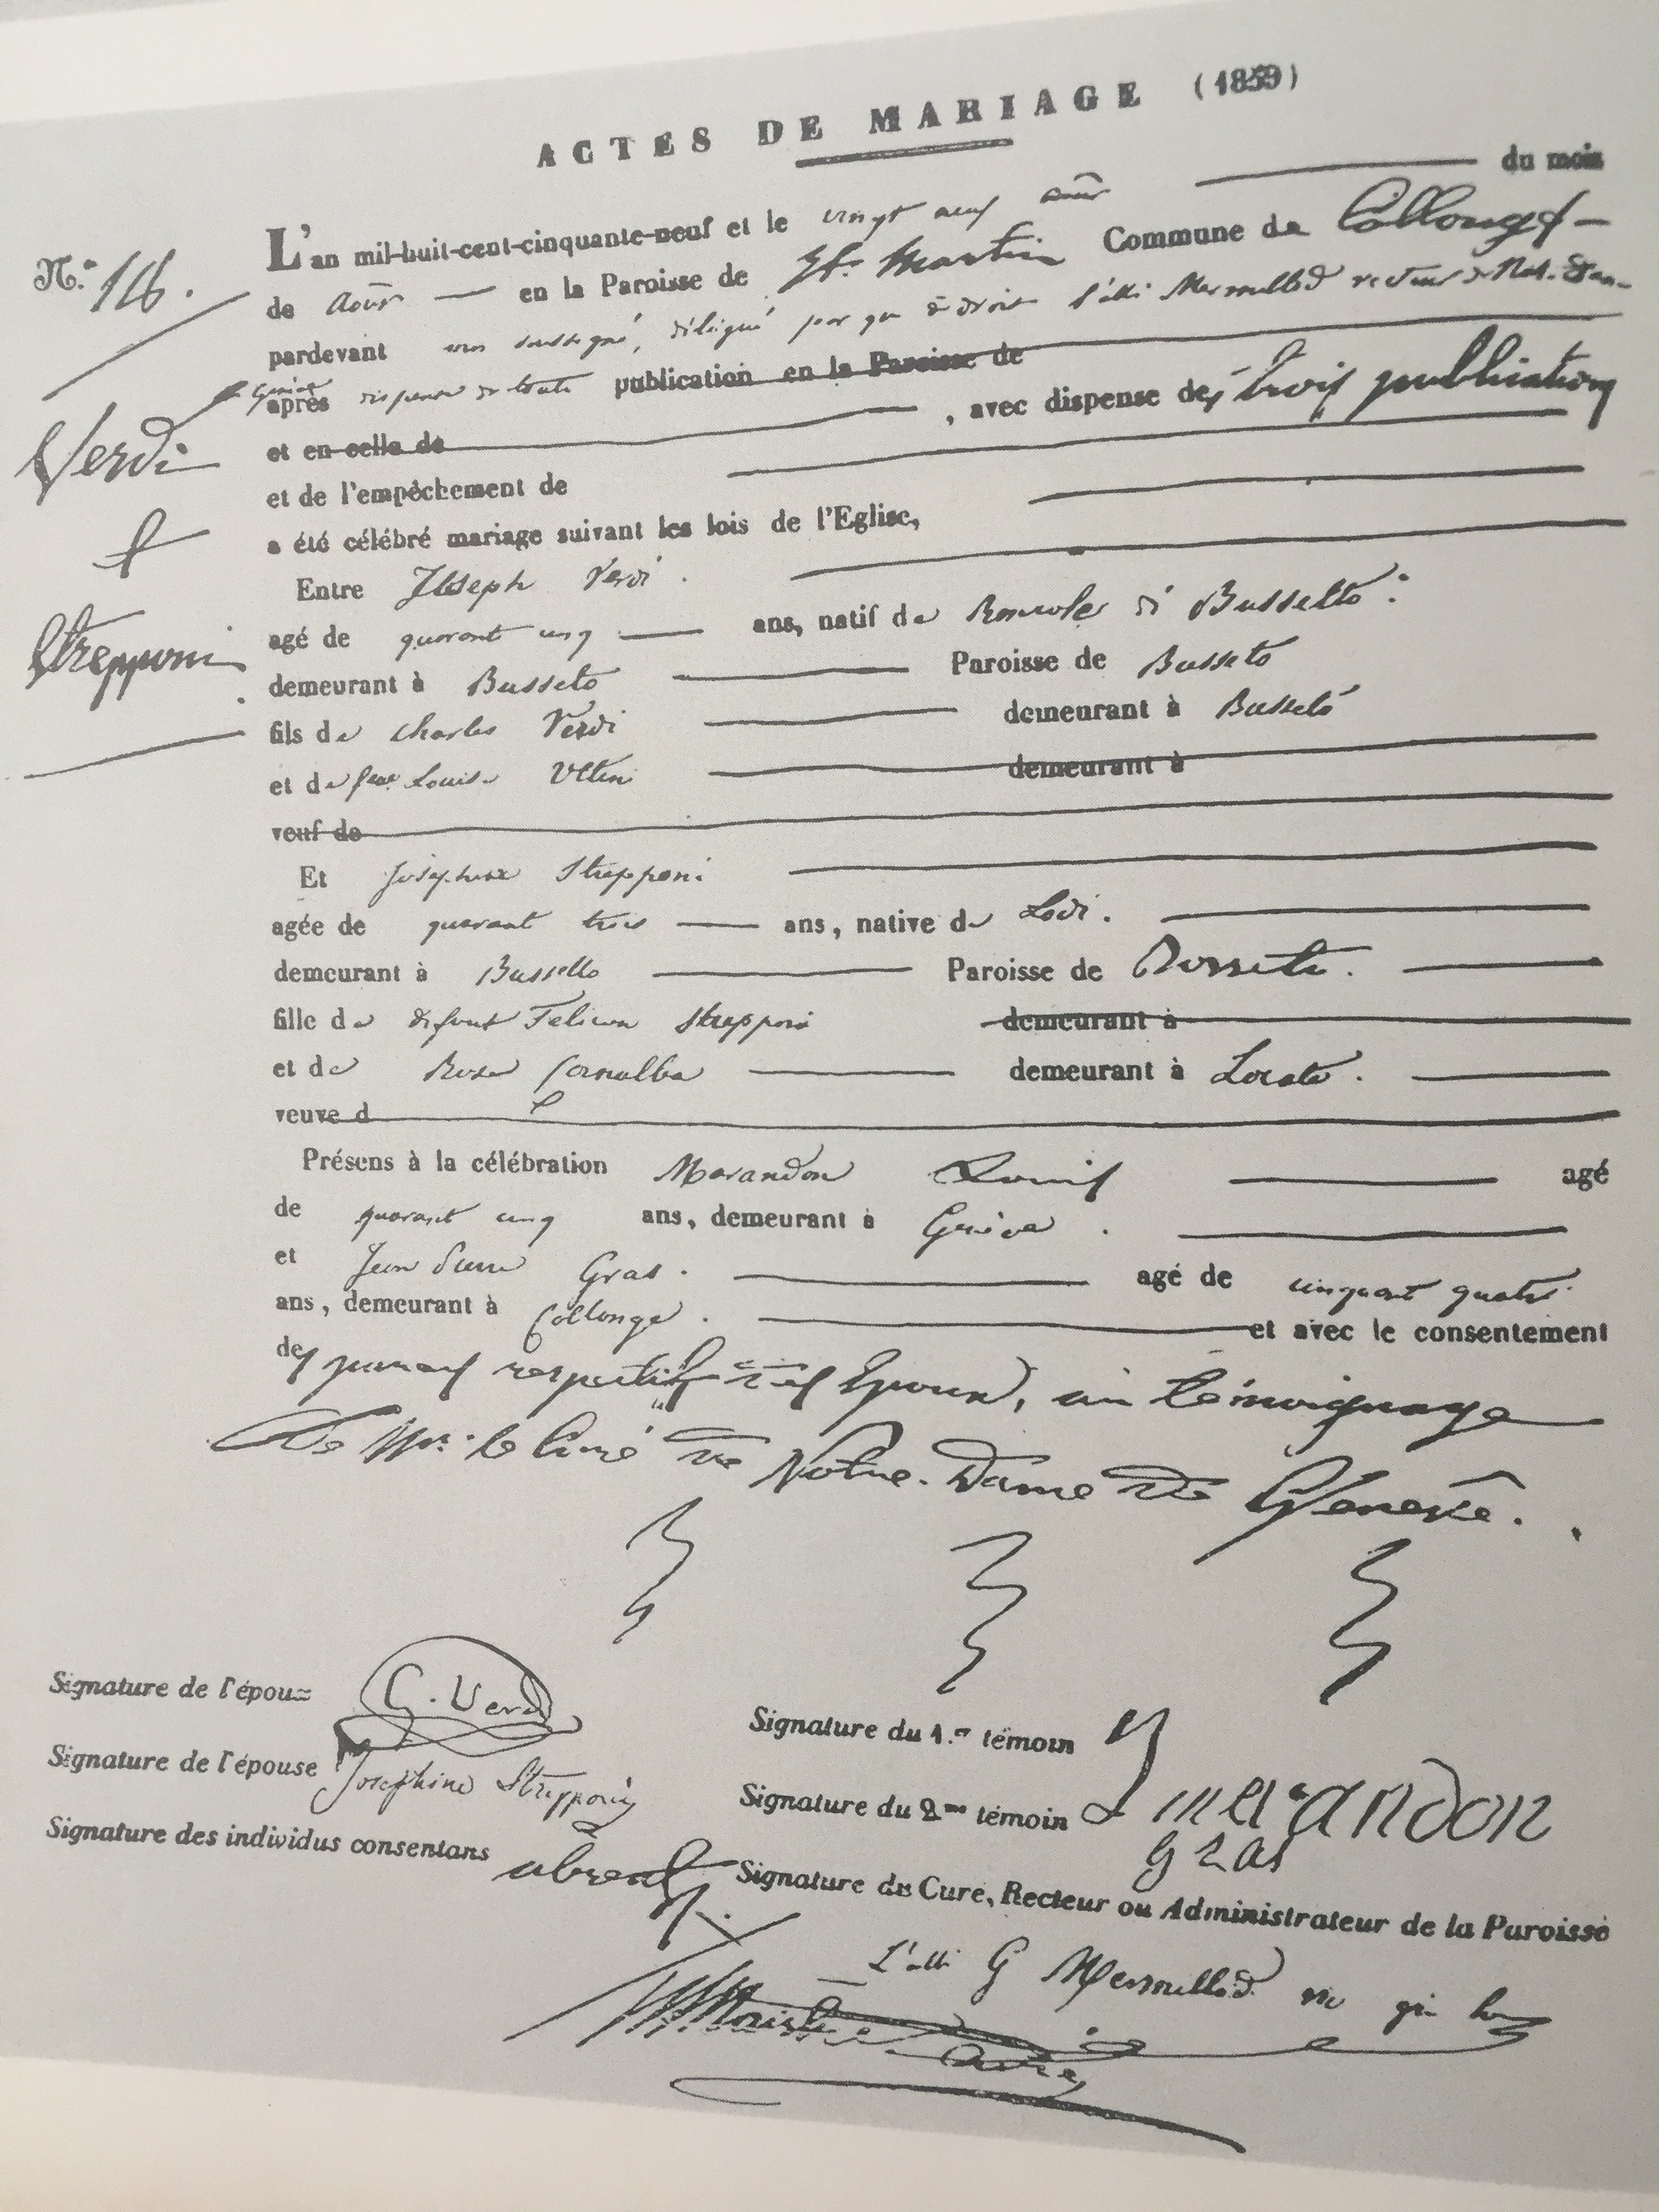 ACTES DE MARIAGE (1859)
N.º 16.
Verdi
et
Strepponi
L'an mil-huit-cent-cinquante-neuf et le vingt neuf août du mois
de Août en la Paroisse de St. Martin Commune de Collonges
pardevant nous soussigné, délégué par qui de droit l'abbé Mermillod recteur de Not. Dam-
après dispense de toute publication en la Paroisse de
et en celle de , avec dispense des trois publications
et de l'empêchement de
a été célébré mariage suivant les lois de l'Eglise,
Entre Joseph Verdi.
agé de quarant cinq ans, natif de Roncole di Busseto.
demeurant à Busseto Paroisse de Busseto
fils de Charles Verdi demeurant à Busseto
et de feue Louise Utini demeurant à
veuf de
Et Joséphine Strepponi
agée de quarant trois ans, native de Lodi.
demeurant à Busseto Paroisse de Busseto.
fille de défunt Felicien Strepponi demeurant à
et de Rosa Cornalba demeurant à Locate.
veuve d
Présens à la célébration Marandon Louis agé
de quarant cinq ans, demeurant à Genève.
et Jean Pierre Gras. agé de cinquant quatre
ans, demeurant à Collonge. et avec le consentement
des parens respectifs des Epoux, un témoignage
de Mr. le Curé de Notre-Dame de Genève.
Signature de l'époux G. Verdi
Signature de l'épouse Josephine Strepponi
Signature des individus consentans absents
Signature du 1.er témoin
Signature du 2me témoin L marandon
gras
Signature du Curé, Recteur ou Administrateur de la Paroisse
L'abbé G Mermillod